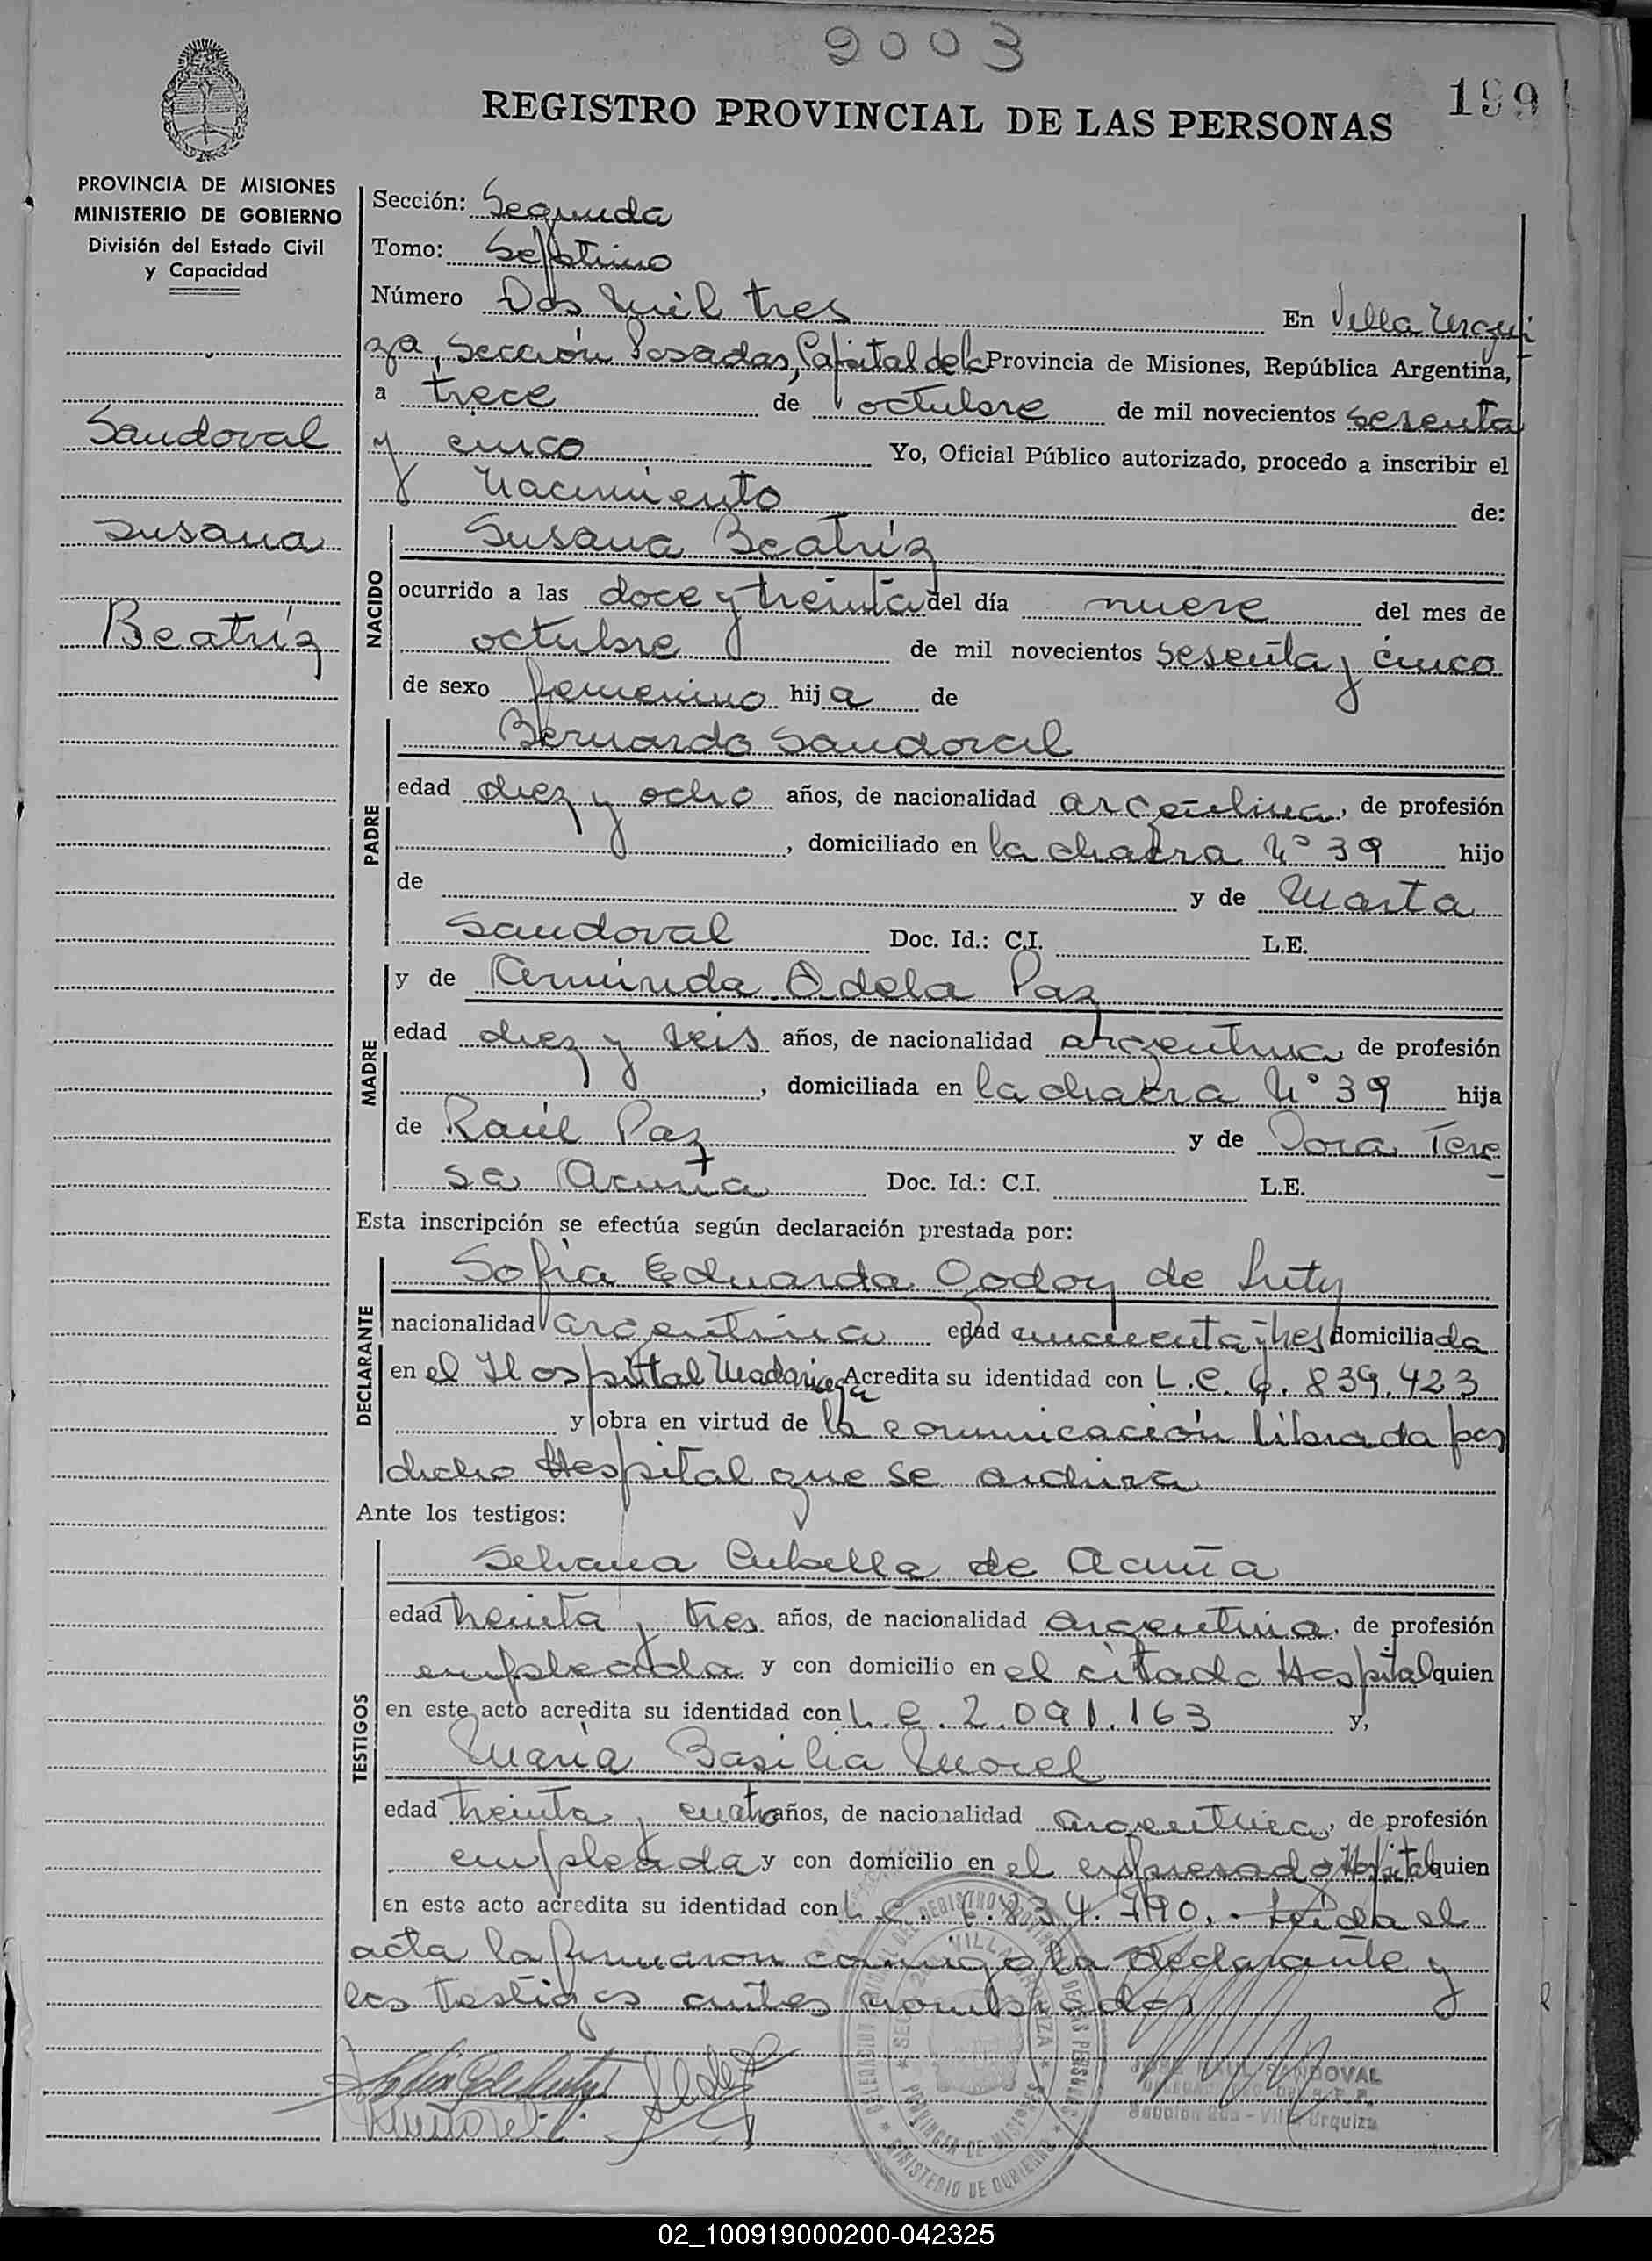 2003
REGISTRO PROVINCIAL DE LAS PERSONAS
199
PROVINCIA DE MISIONES
MINISTERIO DE GOBIERNO
División del Estado Civil
y Capacidad
Sandoval
Susana
Beatríz
Sección: Segunda
Tomo: Septimo
Número Dos mil tres En Villa Urqui
za, Sección Posadas, Capital de la Provincia de Misiones, República Argentina,
a trece de octubre de mil novecientos sesenta
y cinco Yo, Oficial Público autorizado, procedo a inscribir el
Nacimiento de:
NACIDO
Susana Beatríz
ocurrido a las doce y treinta del día nueve del mes de
octubre de mil novecientos sesenta y cinco
de sexo femenino hija de
PADRE
Bernardo Sandoval
edad diez y ocho años, de nacionalidad argentina, de profesión
, domiciliado en la chacra Nº 39 hijo
de y de Marta
Sandoval Doc. Id.: C.I. L.E.
MADRE
y de Arminda Adela Paz
edad diez y seis años, de nacionalidad argentina, de profesión
, domiciliada en la chacra Nº 39 hija
de Raúl Paz y de Dora Tere
sa Acuña Doc. Id.: C.I. L.E.
Esta inscripción se efectúa según declaración prestada por:
DECLARANTE
Sofía Eduarda Godoy de
nacionalidad argentina edad cincuenta y tres domiciliada
en el Hospital Madariaga Acredita su identidad con L.C. 6.839.423
y obra en virtud de la comunicación librada por
dicho Hospital que se archiva
Ante los testigos:
TESTIGOS
Selvana Cubella de Acuña
edad treinta y tres años, de nacionalidad argentina, de profesión
empleada y con domicilio en el citado Hospital quien
en este acto acredita su identidad con L.C. 2.091.163 y,
María Basilia Morel
edad treinta y cuatro años, de nacionalidad argentina, de profesión
empleada y con domicilio en el expresado Hospital quien
en este acto acredita su identidad con L.C. 6.834.790.- Leída el
acta la firmaron conmigo la declarante y
los testigos antes nombrados
SANDOVAL
Sección 2da - Villa Urquiza
VILLA URQUIZA
PROVINCIA DE MISIONES
MINISTERIO DE GOBIERNO
02_100919000200-042325